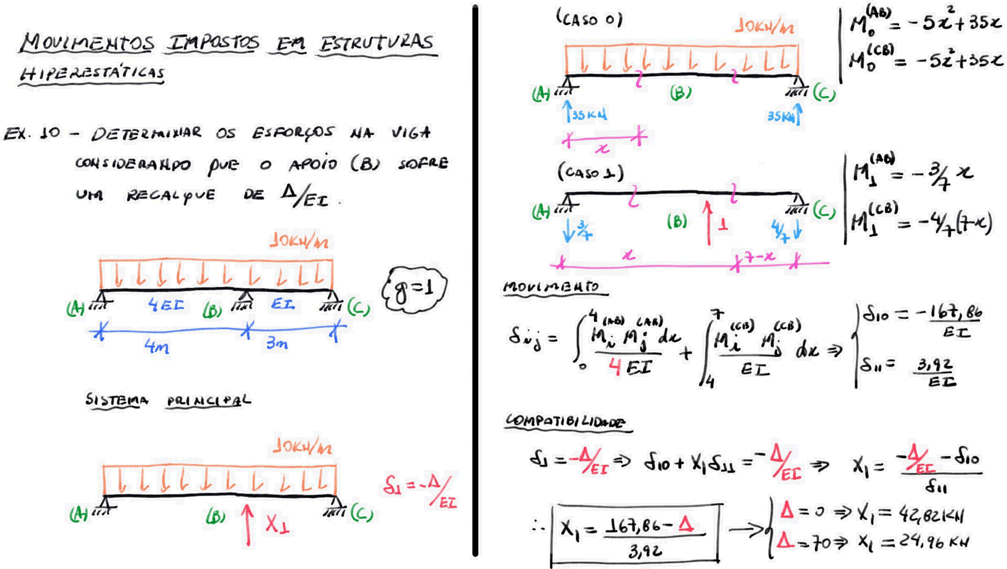 MOVIMENTOS IMPOSTOS EM ESTRUTURAS
HIPERESTÁTICAS
EX. 10 - DETERMINAR OS ESFORÇOS NA VIGA
CONSIDERANDO QUE O APOIO (B) SOFRE
UM RECALQUE DE Δ/EI.
10KN/m
(A) 4EI (B) EI (C)
g=1
4m 3m
SISTEMA PRINCIPAL
10KN/m
(A) (B) (C)
X₁
δ₁ = -Δ/EI
(CASO 0)
10KN/m
(A) (B) (C)
35KN 35KN
x
M₀^(AB) = -5x²+35x
M₀^(CB) = -5x²+35x
(CASO 1)
(A) (B) (C)
3/7 1 4/7
x 7-x
M₁^(AB) = -3/7 x
M₁^(CB) = -4/7(7-x)
MOVIMENTO
δij = ∫₀⁴ Mi^(AB) Mj^(AB) dx / 4EI + ∫₄⁷ Mi^(CB) Mj^(CB) / EI dx ⇒ { δ₁₀ = -167,86/EI
δ₁₁ = 3,92/EI
COMPATIBILIDADE
δ₁ = -Δ/EI ⇒ δ₁₀ + X₁δ₁₁ = -Δ/EI ⇒ X₁ = (-Δ/EI - δ₁₀)/δ₁₁
∴ X₁ = (167,86 - Δ)/3,92 → { Δ = 0 ⇒ X₁ = 42,82KN
Δ = 70 ⇒ X₁ = 24,96 KN